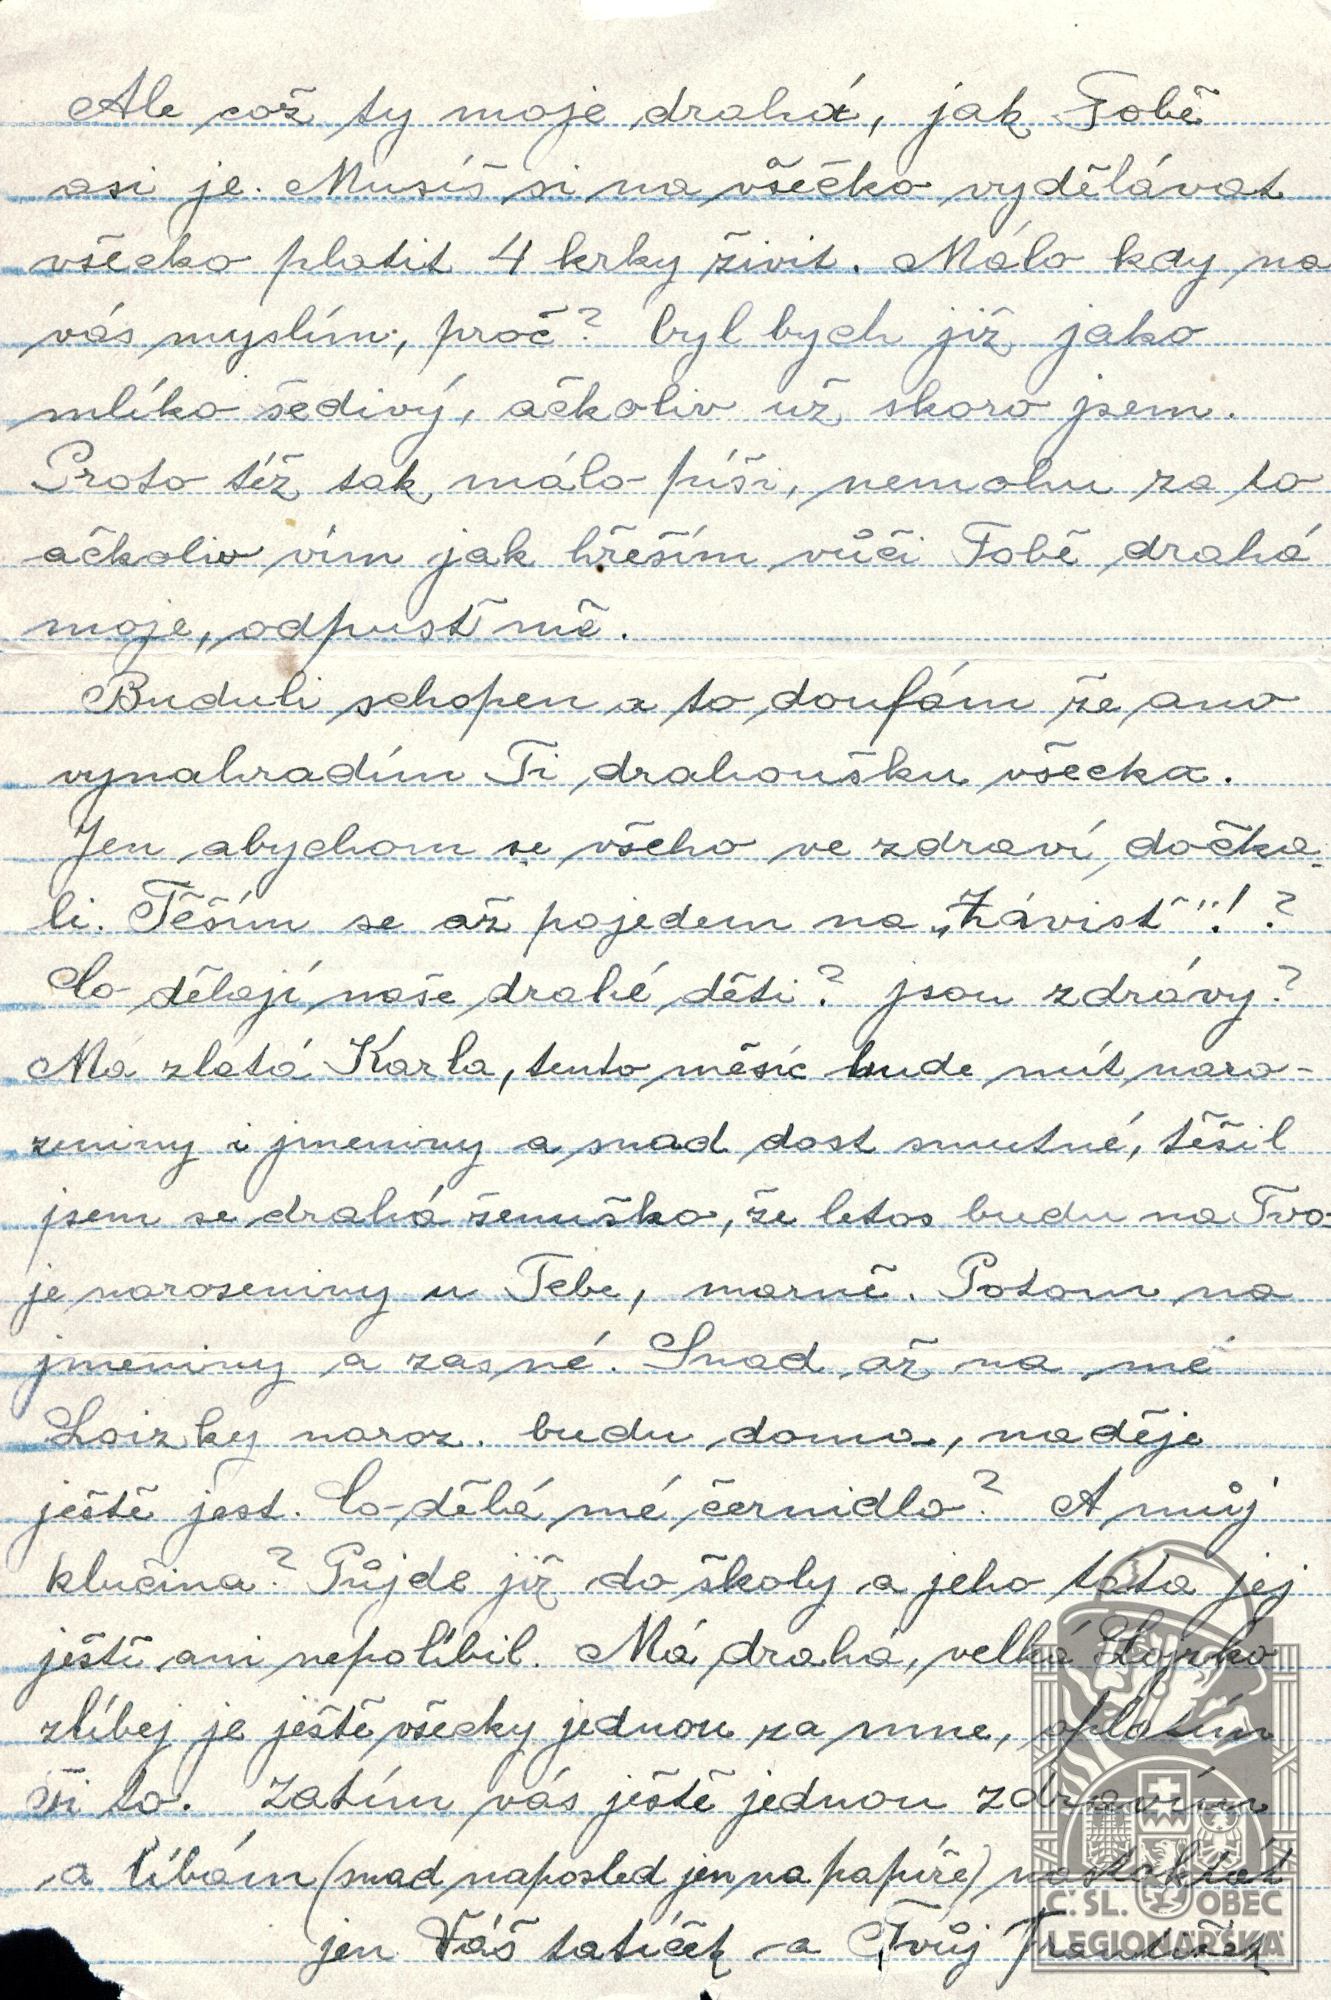 Ale což ty moje drahá, jak Tobě
asi je. Musíš si na všečko vydělávat
všecko platit 4 krky živit. Málo kdy na
vás myslím, proč? byl bych již jako
mlíko šedivý, ačkoliv už skoro jsem.
Proto též tak málo píši, nemohu za to
ačkoliv vím jak hřeším vůči Tobě drahá
moje, odpusť mě.
Buduli schopen a to doufám že ano
vynahradím Ti drahoušku všecka.
Jen abychom se všeho ve zdraví dočka-
li. Těším se až pojedem na „Závist"! ?
Co dělají naše drahé děti? jsou zdrávy?
Má zlatá Karla, tento měsíc bude mít naro-
zeniny i jmeniny a snad dost smutné, těšil
jsem se drahá ženuško, že letos budu na Tvo-
je naroseniny u Tebe, marně. Potom na
jmeniny a zasné. Snad až na mé
Loizky naroz. budu doma, naděje
ještě jest. Co dělá mé černidlo? A můj
klučina? Půjde již do školy a jeho táta jej
ještě ani nepolíbil. Má drahá, velká Lojzko
zlíbej je ještě všecky jednou za mne, oplatím
Ti to. Zatím vás ještě jednou zdravím
a líbám (snad naposled jen na papíře)
jen Váš tatíček a Tvůj Frantíšek
Č. SL. OBEC
LEGIONÁŘSKÁ